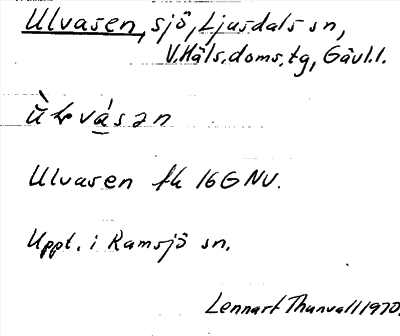 Ulvasen, sjö, Ljusdals sn,
V. Häls. doms. tg, Gävl. l.
Ulvasen fk 16G NV.
Uppt. i Ramsjö sn.
Lennart Thunvall 1970.